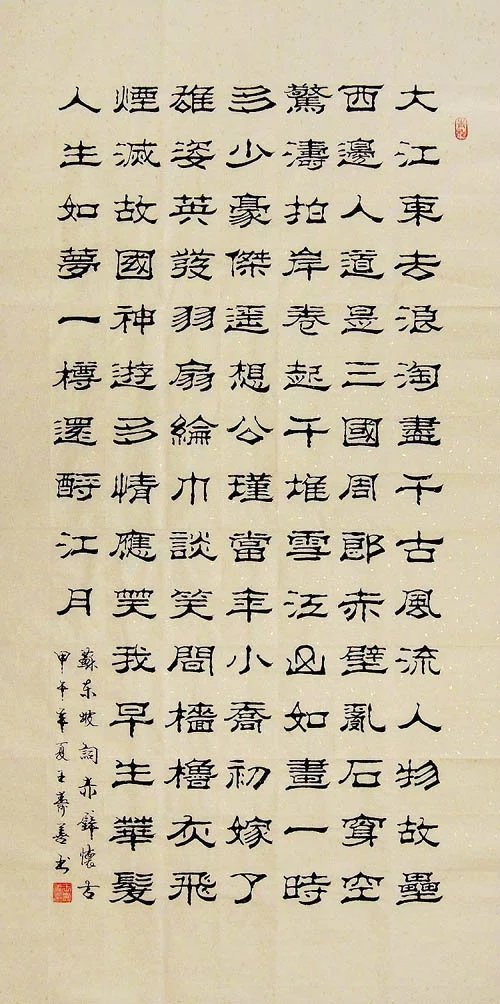 大江東去浪淘盡千古風流人物故壘
西邊人道昰三國周郎赤壁亂石穿空
驚濤拍岸卷起千堆雪江山如畫一時
多少豪傑遥想公瑾當年小喬初嫁了
雄姿英發羽扇綸巾談笑間檣櫓灰飛
煙滅故國神遊多情應笑我早生華髮
人生如夢一樽還酹江月
蘇东坡詞赤壁懷古
甲午夏王善书